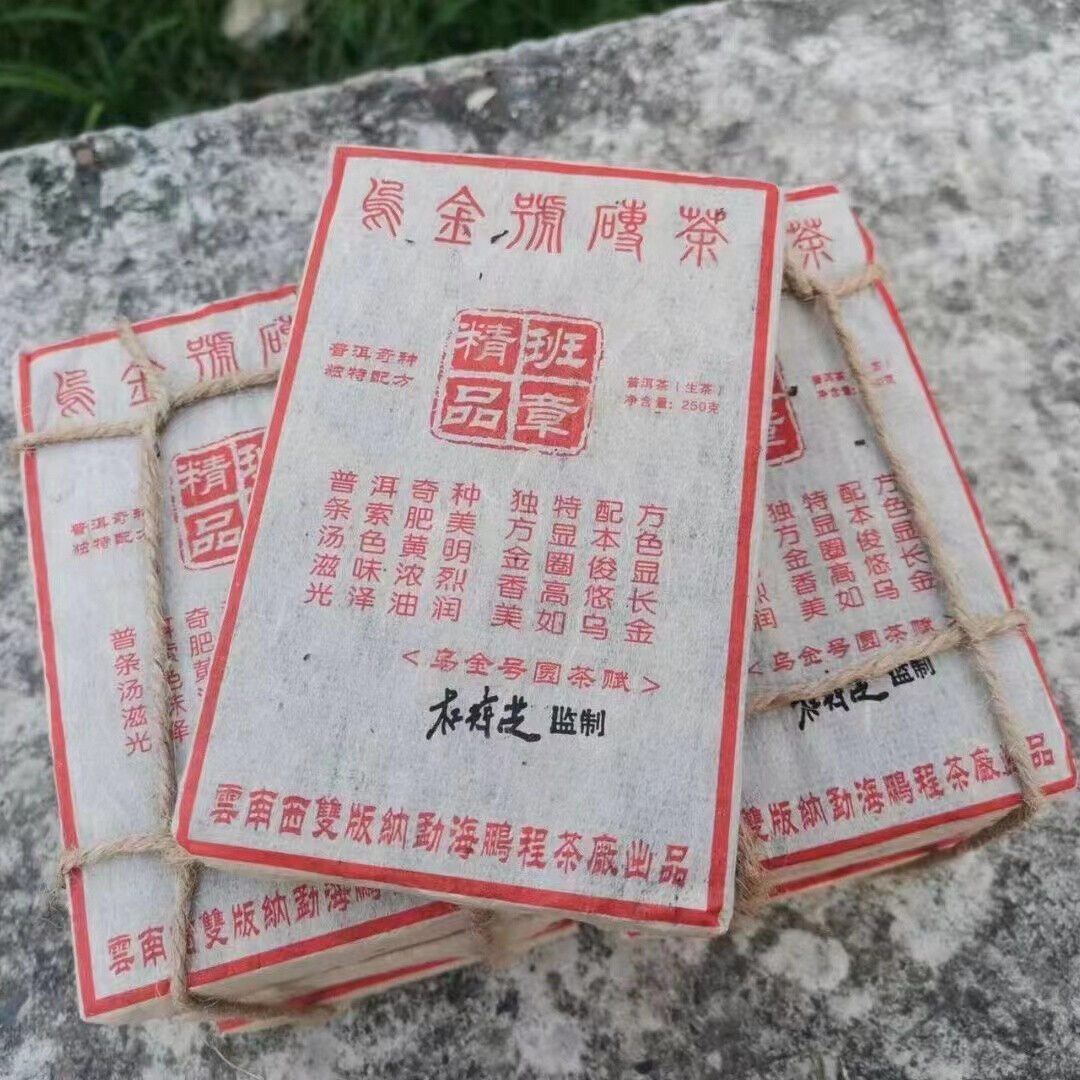 烏金號磚茶
普洱奇种
独特配方
班章
精品
普洱茶（生茶）
净含量：250克
普洱奇种 独特配方
条索肥美 方显本色
汤色黄明 金圈俊显
滋味浓烈 香高悠长
光泽油润 美如乌金
<乌金号圆茶赋>
监制
雲南西雙版納勐海鵬程茶廠出品
烏金號磚
普洱奇种
独特配方
班
精品
奇
普 肥
条索黄
汤色
滋味
光泽
雲南 雙版納勐海鵬
茶
章
独特配方
方显本色
金圈俊显
烈 香高悠长
润 美如乌金
<乌金号圆茶赋>
监制
雙版納勐海鵬程茶廠出品